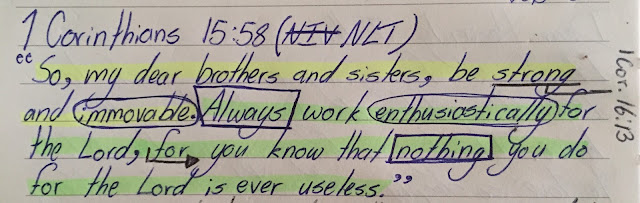 1 Corinthians 15:58 (NIV NLT)
"So, my dear brothers and sisters, be strong
and immovable. Always work enthusiastically for
the Lord, for you know that nothing you do
for the Lord is ever useless."
1 Cor. 16:13